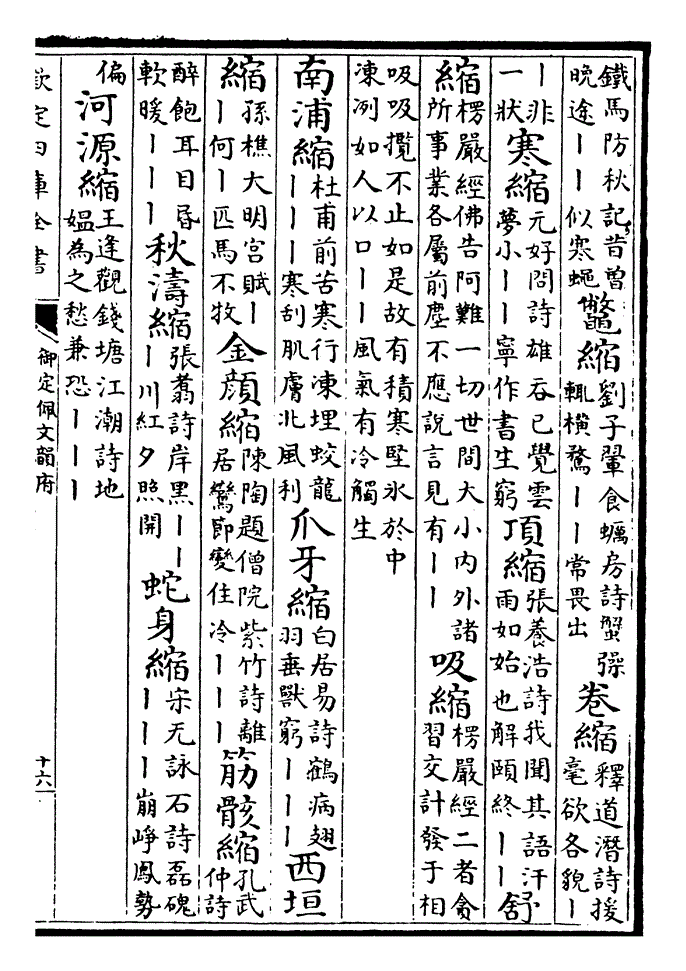 鐵馬防秋記昔曽
晚途丨丨似寒蠅
鼈縮
劉子翬食蠣房詩蟹螯
輒横騖丨丨常畏出
卷縮
釋道潛詩援
毫欲各貌丨
丨非
一狀
寒縮
元好問詩雄吞已覺雲
夢小丨丨寧作書生窮
頂縮
張養浩詩我聞其語汗
雨如始也解頤終丨丨
舒
縮
楞嚴經佛告阿難一切世間大小内外諸
所事業各屬前塵不應說言見有丨丨
吸縮
楞嚴經二者貪
習交計發于相
吸吸攬不止如是故有積寒堅氷於中
凍冽如人以口丨丨風氣有冷觸生
南浦縮
杜甫前苦寒行凍埋蛟龍
丨丨丨寒刮肌膚北風利
爪牙縮
白居易詩鶴病翅
羽垂獸窮丨丨丨
西垣
縮
孫樵大明宫賦丨
丨何丨匹馬不牧
金顔縮
陳陶題僧院紫竹詩離
居鸞節變住冷丨丨丨
筋骸縮
孔武
仲詩
醉飽耳目昬
軟暖丨丨丨
秋濤縮
張翥詩岸黑丨丨
丨川紅夕照開
蛇身縮
宋无詠石詩磊磈
丨丨丨崩崢鳳勢
偏
河源縮
王逢觀錢塘江潮詩地
媪為之愁兼恐丨丨丨
欽定四庫全書
御定佩文韻府
十六